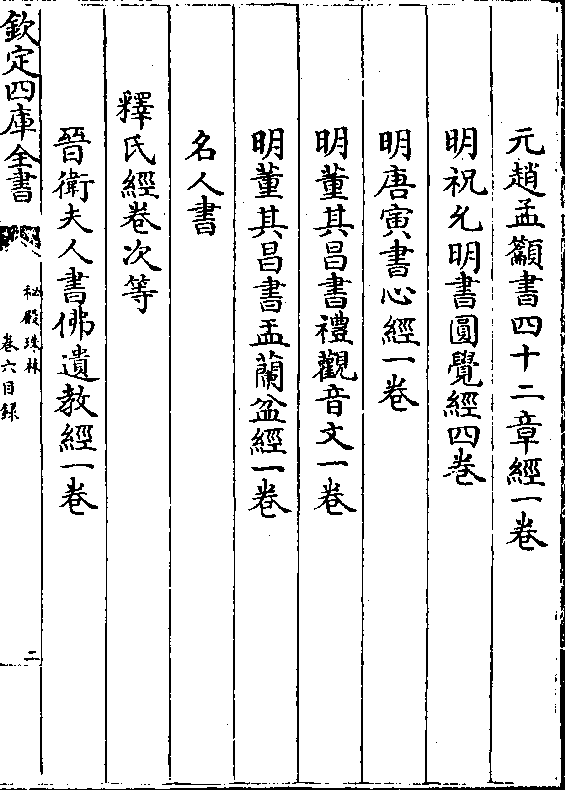 元趙孟籲書四十二章經一卷
明祝允明書圓覺經四卷
明唐寅書心經一卷
明董其昌書禮觀音文一卷
明董其昌書盂蘭盆經一卷
名人書
釋氏經卷次等
晉衛夫人書佛遺教經一卷
欽定四庫全書
秘殿珠林
卷六目録
二